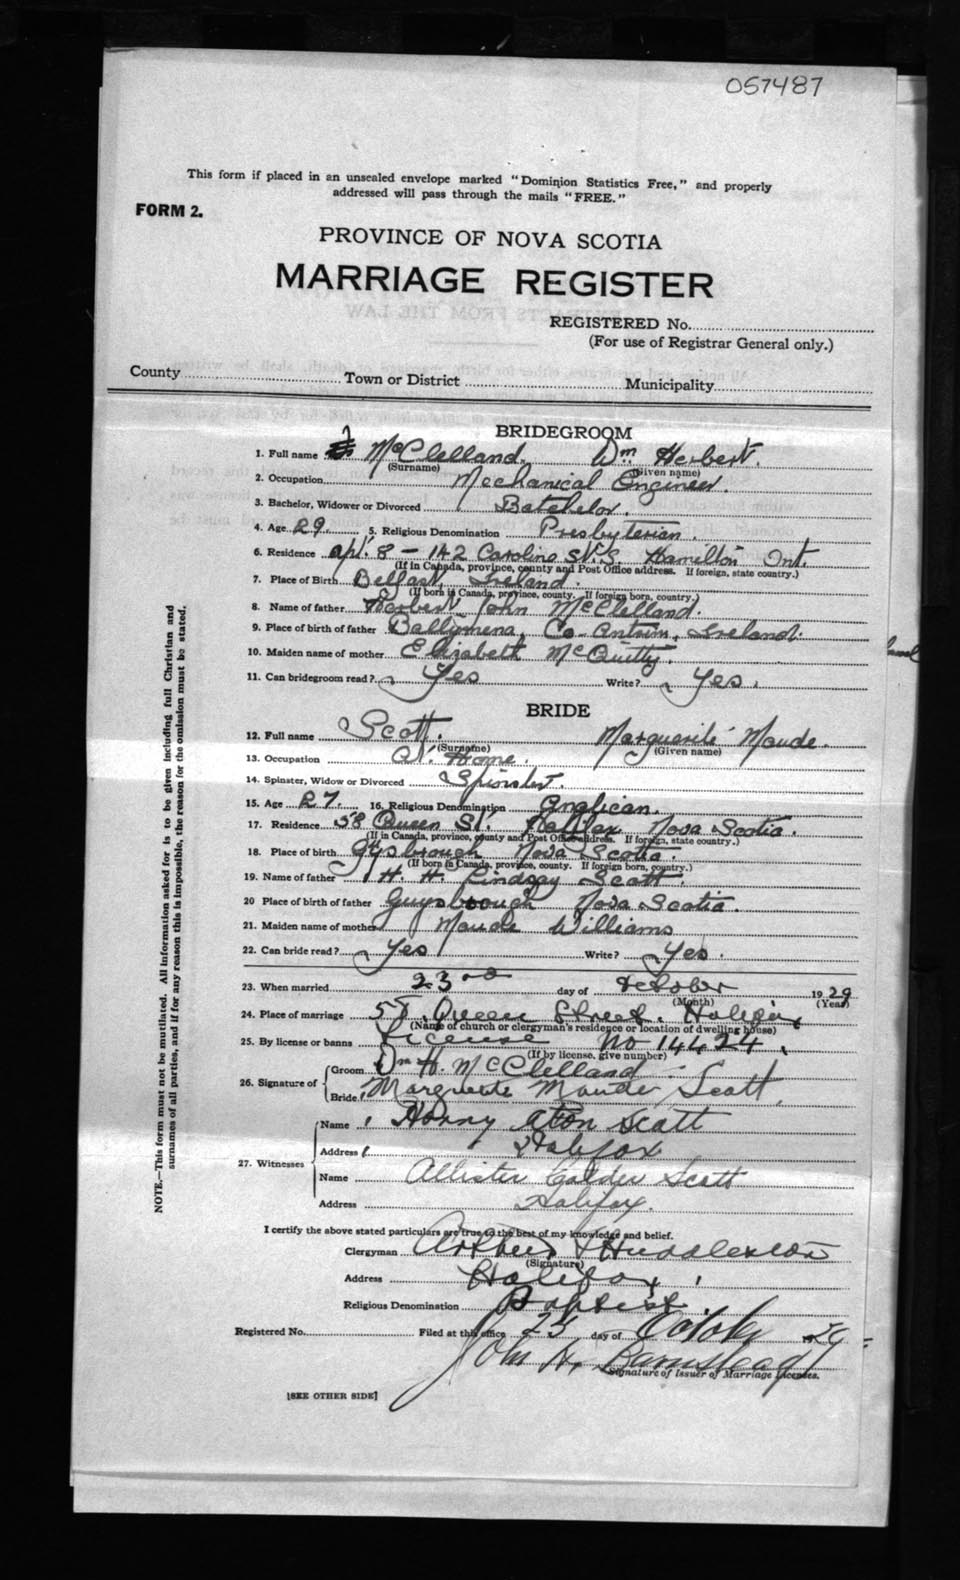 057487
This form if placed in an unsealed envelope marked "Dominion Statistics Free," and properly
addressed will pass through the mails "FREE."
FORM 2.
PROVINCE OF NOVA SCOTIA
MARRIAGE REGISTER
REGISTERED No.
(For use of Registrar General only.)
County Town or District Municipality
BRIDEGROOM
1. Full name McClelland. Wm Herbert.
(Surname) (Given name)
2. Occupation Mechanical Engineer.
3. Bachelor, Widower or Divorced Batchelor.
4. Age 29. 5. Religious Denomination Presbyterian.
6. Residence apt. 8 - 142 Caroline St. S. Hamilton Ont.
(If in Canada, province, county and Post Office address. If foreign, state country.)
7. Place of Birth Belfast, Ireland.
(If born in Canada, province, county. If foreign born, country.)
8. Name of father Herbert John McClelland.
9. Place of birth of father Ballymena, Co. Antrim, Ireland.
10. Maiden name of mother Elizabeth McQuitty.
11. Can bridegroom read? Yes Write? Yes.
BRIDE
12. Full name Scott. Marguerite Maude.
(Surname) (Given name)
13. Occupation At Home.
14. Spinster, Widow or Divorced Spinster.
15. Age 27. 16. Religious Denomination Anglican.
17. Residence 58 Queen St. Halifax Nova Scotia.
(If in Canada, province, county and Post Office address. If foreign, state country.)
18. Place of birth Gysbrough Nova Scotia.
(If born in Canada, province, county. If foreign born, country.)
19. Name of father H. H. Lindsay Scott.
20 Place of birth of father Guysbrough Nova Scotia.
21. Maiden name of mother Maude Williams
22. Can bride read? Yes Write? Yes.
23. When married 23rd day of October 1929
(Month) (Year)
24. Place of marriage 58 Queen Street. Halifax
(Name of church or clergyman's residence or location of dwelling house)
25. By license or banns License No 14424.
(If by license, give number)
26. Signature of Groom Wm H. McClelland
Bride Marguerite Maude Scott.
27. Witnesses Name Harry Scott
Address Halifax
Name Allister Calder Scott
Address Halifax.
I certify the above stated particulars are true to the best of my knowledge and belief.
Clergyman Arthur Huddleston
(Signature)
Address Halifax
Religious Denomination Baptist.
Registered No. Filed at this office 23 day of October 1929
John H. Barnstead
Signature of Issuer of Marriage Licenses.
[SEE OTHER SIDE]
NOTE.—This form must not be mutilated. All information asked for is to be given including full Christian and
surnames of all parties, and if for any reason this is impossible, the reason for the omission must be stated.